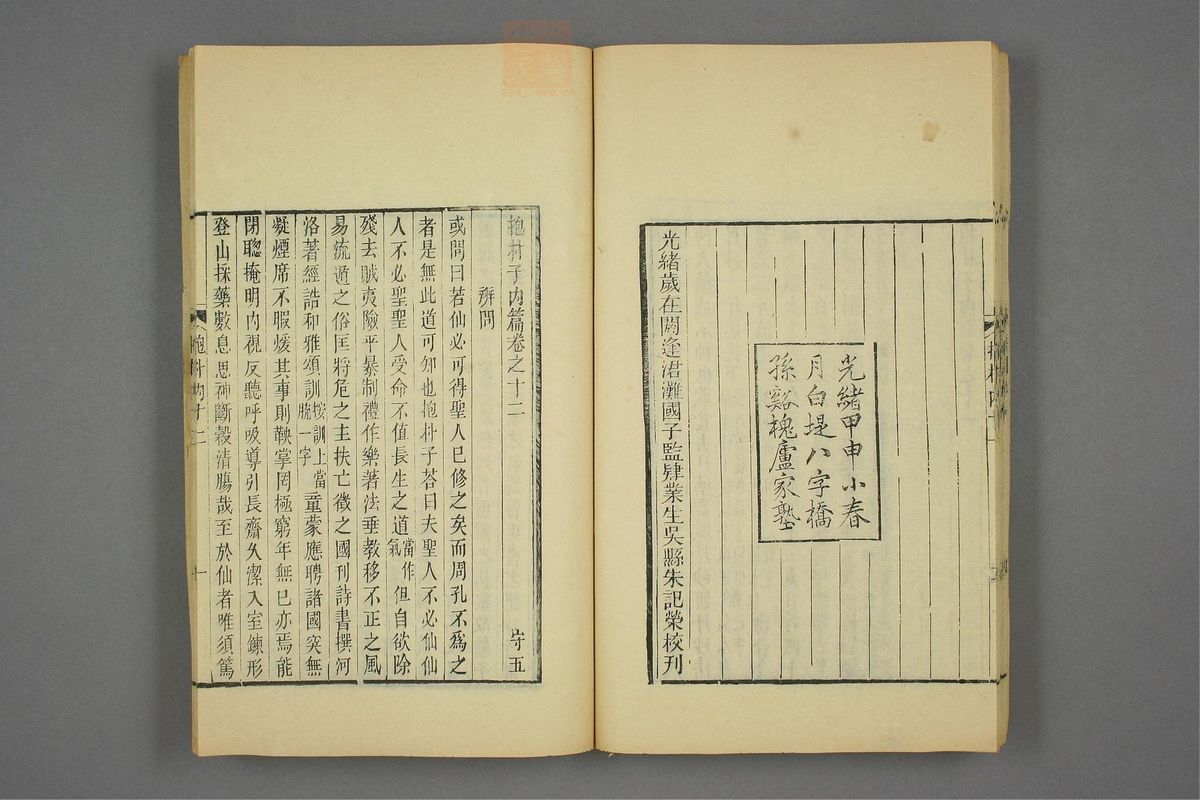 光緒甲申小春
月白堤八字橋
孫谿槐廬家塾
光緒歲在閼逢涒灘國子監肄業生吳縣朱記榮校刊
抱朴子內篇卷之十二
辨問
守五
或問曰若仙必可得聖人已修之矣而周孔不爲之
者是無此道可知也抱朴子荅曰夫聖人不必仙仙
人不必聖聖人受命不值長生之道當作氣但自欲除
殘去賊夷險平暴制禮作樂著法垂教移不正之風
易流遁之俗匡將危之主扶亡徵之國刊詩書撰河
洛著經誥和雅頌訓按訓上當脫一字童蒙應聘諸國突無
凝煙席不暇煖其事則鞅掌罔極窮年無已亦焉能
閉聰掩明內視反聽呼吸導引長齋久潔入室鍊形
登山採藥數息思神斷穀清腸哉至於仙者唯須篤
抱朴內十二
十